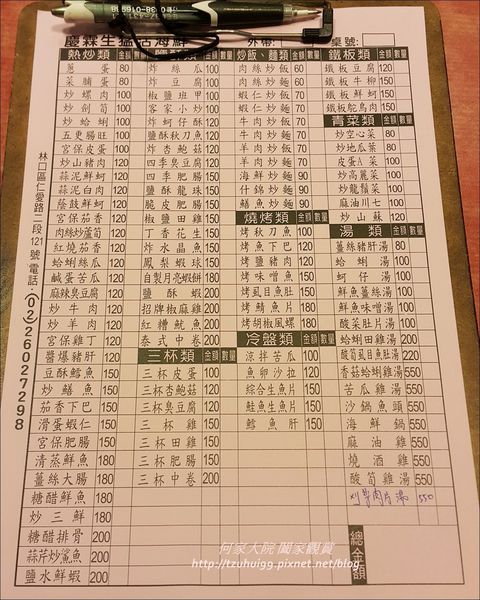 慶霖生猛活海鮮 外帶: 桌號:
林口區仁愛路二段121號 電話:(02)26027298
熱炒類 金額 數量
蔥蛋 80
菜脯蛋 80
炒螺肉 100
炒劍筍 100
炒蛤蜊 100
五更腸旺 100
宮保皮蛋 100
炒山豬肉 120
蒜泥鮮蚵 120
蒜泥白肉 120
蔭鼓鮮蚵 120
宮保茄香 120
肉絲炒蘆筍 120
紅燒茄香 120
蛤蜊絲瓜 120
鹹蛋苦瓜 120
麻辣臭豆腐 120
炒牛肉 120
炒羊肉 120
宮保雞丁 120
醬爆豬肝 120
豆酥鱈魚 150
炒鱔魚 150
茄香下巴 150
滑蛋蝦仁 150
宮保肥腸 150
清蒸鮮魚 180
薑絲大腸 180
糖醋鮮魚 180
炒三鮮 180
糖醋排骨 200
蒜芹炒鯊魚 200
鹽水鮮蝦 200
金額 數量
炸絲瓜 100
炸豆腐 100
椒鹽班甲 100
客家小炒 100
炸蚵仔酥 120
鹽酥秋刀魚 120
炸杏鮑菇 120
四季臭豆腐 120
四季肥腸 150
鹽酥龍珠 150
脆皮肥腸 150
椒鹽田雞 150
丁香花生 150
炸水晶魚 150
鳳梨蝦球 150
自製月亮蝦餅 180
鹽酥蝦 200
招牌椒麻雞 200
紅糟魷魚 200
泰式中卷 200
三杯類 金額 數量
三杯皮蛋 100
三杯杏鮑菇 120
三杯臭豆腐 120
三杯雞 150
三杯田雞 150
三杯肥腸 150
三杯中卷 200
炒飯、麵類 金額 數量
肉絲炒飯 60
肉絲炒麵 60
蝦仁炒飯 70
蝦仁炒麵 70
牛肉炒飯 70
牛肉炒麵 70
羊肉炒飯 70
羊肉炒麵 70
海鮮炒麵 90
什錦炒麵 90
鱔魚炒麵 90
燒烤類 金額 數量
烤秋刀魚 100
烤魚下巴 120
烤鹽豬肉 120
烤味噌魚 150
烤虱目魚肚 150
烤鯖魚片 180
烤胡椒風螺 180
冷盤類 金額 數量
涼拌苦瓜 100
魚卵沙拉 120
綜合生魚片 150
鮭魚生魚片 150
鱈魚肝 150
鐵板類 金額 數量
鐵板豆腐 120
鐵板牛柳 150
鐵板鮮蚵 150
鐵板鴕鳥肉 150
青菜類 金額 數量
炒空心菜 80
炒地瓜葉 80
皮蛋A菜 100
炒高麗菜 100
炒龍鬚菜 100
麻油川七 100
炒山蘇 120
湯類 金額 數量
薑絲豬肝湯 80
蛤蜊湯 100
蚵仔湯 100
鮮魚薑絲湯 100
鮮魚味噌湯 100
酸菜肚片湯 100
蛤蜊田雞湯 200
酸筍虱目魚肚湯 220
香菇蛤蜊雞湯 550
苦瓜雞湯 550
沙鍋魚頭 550
海鮮鍋 550
麻油雞 550
燒酒雞 550
酸筍雞湯 550
550
總金額
何家大院 闔家觀賞
http://tzuhui99.pixnet.net/blog